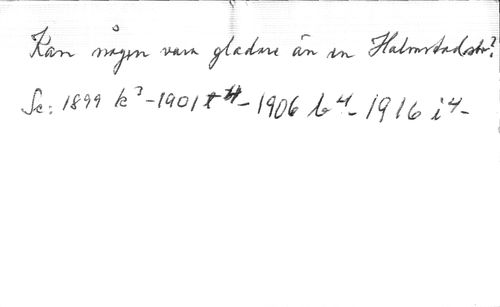 Kan någon vara gladare än en Halmstadstr?
Se: 1899 k³ - 1901 t4 - 1906 b4 - 1916 i4 -